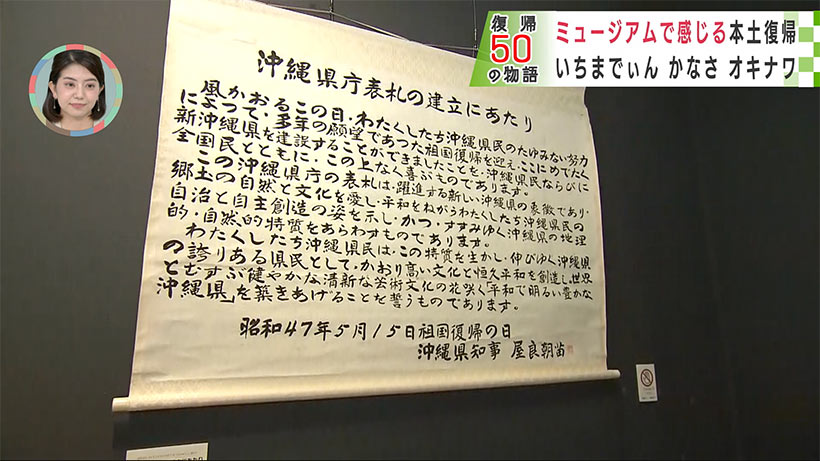 復帰
50
の物語
ミュージアムで感じる本土復帰
いちまでぃん かなさ オキナワ
沖縄県庁表札の建立にあたり
風かおるこの日・わたくしたち沖縄県民のたゆみない努力
によって・多年の願望であつた祖国復帰を迎え・ここにめでたく
新沖縄県を建設することができましたことを・沖縄県民ならびに
全国民とともに・この上なく喜ぶものであります。
この沖縄県庁の表札は・躍進する新しい沖縄県の象徴であり・
郷土の自然と文化を愛し・平和をねがうわたくしたち沖縄県民の
自治と自主創造の姿を示し・かつ・すすみゆく沖縄県の地理
的・自然的特質をあらわすものであります。
わたくしたち沖縄県民は・この特質を生かし・伸びゆく沖縄県
の誇りある県民として・かおり高い文化と恒久平和を創造し・世界
とむすぶ健やかな清新な芸術文化の花咲く「平和で明るい豊かな
沖縄県」を築きあげることを誓うものであります。
昭和47年5月15日祖国復帰の日
沖縄県知事 屋良朝苗